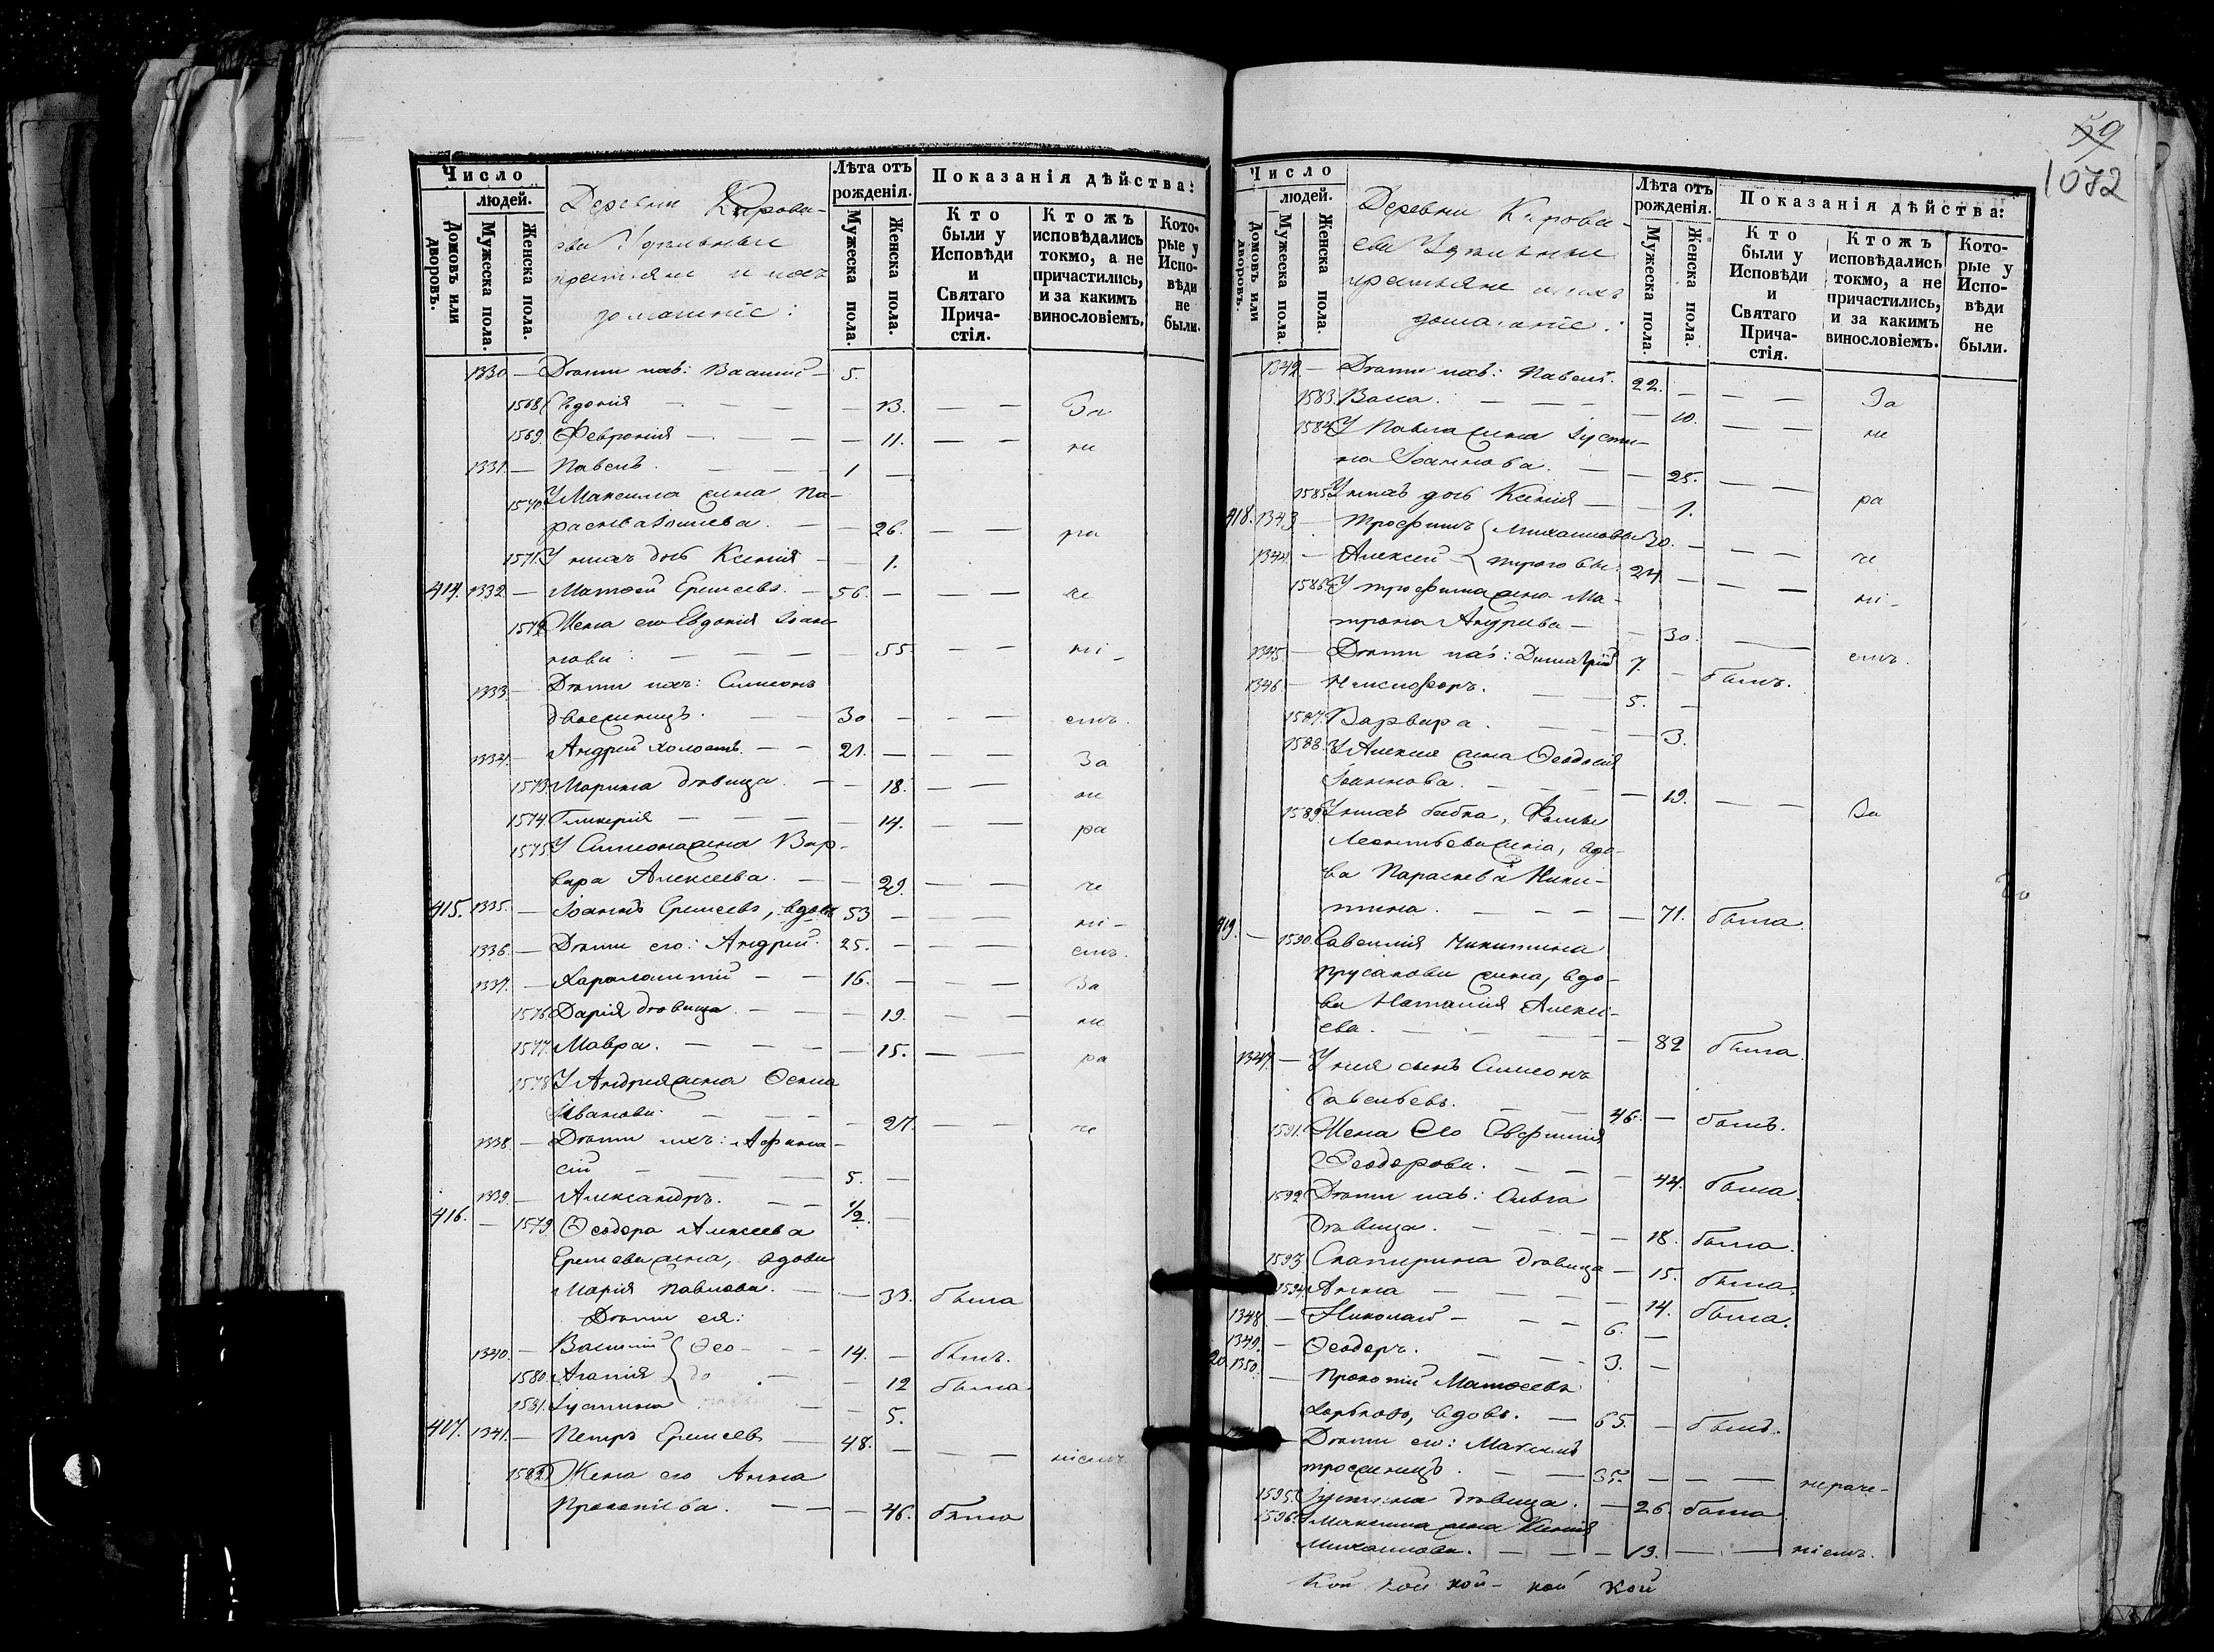 Число
людей.
Домовъ или дворовъ.
Мужеска пола.
Женска пола.
Деревни Кирова-
ева Удѣльные
крестьяне и ихъ
домашніе:
Лѣта отъ рожденія.
Мужеска пола.
Женска пола.
Показанія дѣйства:
Кто были у Исповѣди и Святаго Прича-стія.
Ктожъ исповѣдались токмо, а не причастились, и за какимъ винословіемъ.
Кото-рые у Испо-вѣди не были.
1330 — Дѣти ихъ: Василій — 5.
1568 Евдокія — — — — 13. — — За
1569. Феврония — — — — 11. — — не
1331. — Павелъ. — — 1 —
1570. У Максима жена Па-
раскева — — 26. — — ра
1571. У нихъ дочь Ксенія — — 1.
414. 1332. — Матвей Еремеевъ. — 56. — — — че
1572 Жена его Евдокія Іоан-
нова: — — — — 55. — — ні-
1333. — Дѣти ихъ: Симеонъ
двоеженецъ. — — 30 — — — емъ.
1334. — Андрей холостъ. — — 21. — — — За
1573 Марина дѣвица. — — 18. — — не
1574. Гликерія — — — — 14. — — ра
1575 У Симеона жена Вар-
вара Алексеева. — — 29. — — че
415. 1335. — Іоаннъ Еремеевъ, вдовъ 53 — — — ні-
1336. — Дѣти его: Андрей. 25. — — — емъ.
1337. — Харалампій — — 16. — — — За
1576 Дарія дѣвица. — — — 19. — — не
1577. Мавра. — — — — 15. — — ра
1578 У Андрея жена Фекла
Иванова. — — — — 27. — — че
1338. — Дѣти ихъ: Афана-
сій — — — 5. —
1339. — Александръ. — — 1/2. —
416. — 1579. Ѳеодора Алексеева
Еремеева жена, вдова
Марія Павлова. — — 33. была
Дѣти ея:
1340. — Василій Ѳео- — — 14. — былъ.
1580. Агафія до — — 12 была
1581. Іустина — — 5.
417. 1341. — Петръ Еремеевъ — 48. — — — ніемъ
1582 Жена его Анна
Прокопіева. — — — 46. была
59
1072
Число
людей.
Домовъ или дворовъ.
Мужеска пола.
Женска пола.
Деревни Кирова-
ева Удѣльные
крестьяне и ихъ
домашніе:
Лѣта отъ рожденія.
Мужеска пола.
Женска пола.
Показанія дѣйства:
Кто были у Исповѣди и Святаго Прича-стія.
Ктожъ исповѣдались токмо, а не причастились, и за какимъ винословіемъ.
Кото-рые у Испо-вѣди не были.
1342. — Дѣти ихъ: Павелъ. 22. — — — За
1583. Васса. — — — — 10. — — не
1584 У Павла жена Іусти-
на Іоаннова. — — 25. — — ра
1585 У нихъ дочь Ксенія — — 1.
418. 1343 — Трофимъ Михаиловы 30. — — — че
1344. — Алексей 24. — — — ні-
1586 У Трофима жена Ма-
трона Андреева — — 30. — емъ.
1345. — Дѣти ихъ: Димитрій 7. — былъ.
1346 — Никифоръ. — — 5. —
1587. Варвара. — — — 3.
1588. У Алексея жена Ѳеодосія
Іоаннова. — — — 19. — — За
1589 У нихъ бабка, Фомы
Леонтьева жена, вдо-
ва Параскева Ники-
тина. — — — — 71. была.
419. — 1590. Савелія Никитина
Прусакова жена, вдо-
ва Наталія Алексе-
ева. — — — — 82 была.
1347. — У нея сынъ Симеонъ
Савельевъ. — — 46. — былъ.
1591. Жена его Евфимія
Ѳеодорова. — — — 44. была.
1592 Дѣти ихъ: Ольга
дѣвица. — — — — 18. была.
1593. Екатерина дѣвица — 15. была.
1594. Анна — — — — 14. была.
1348 — Николай — — — 6. —
1349. — Ѳеодоръ. — — 3. —
20. 1350. — Прокопій Матвеевъ
Харьковъ, вдовъ. — 65. — былъ.
Дѣти его: Максимъ
троеженецъ. — — 35. — — — нераче-
1595. Іустина дѣвица. — 26 была
1596. У Максима жена Ксенія
Михаилова. — — — — 19. — — ніемъ.
кой кой кой- кой кой